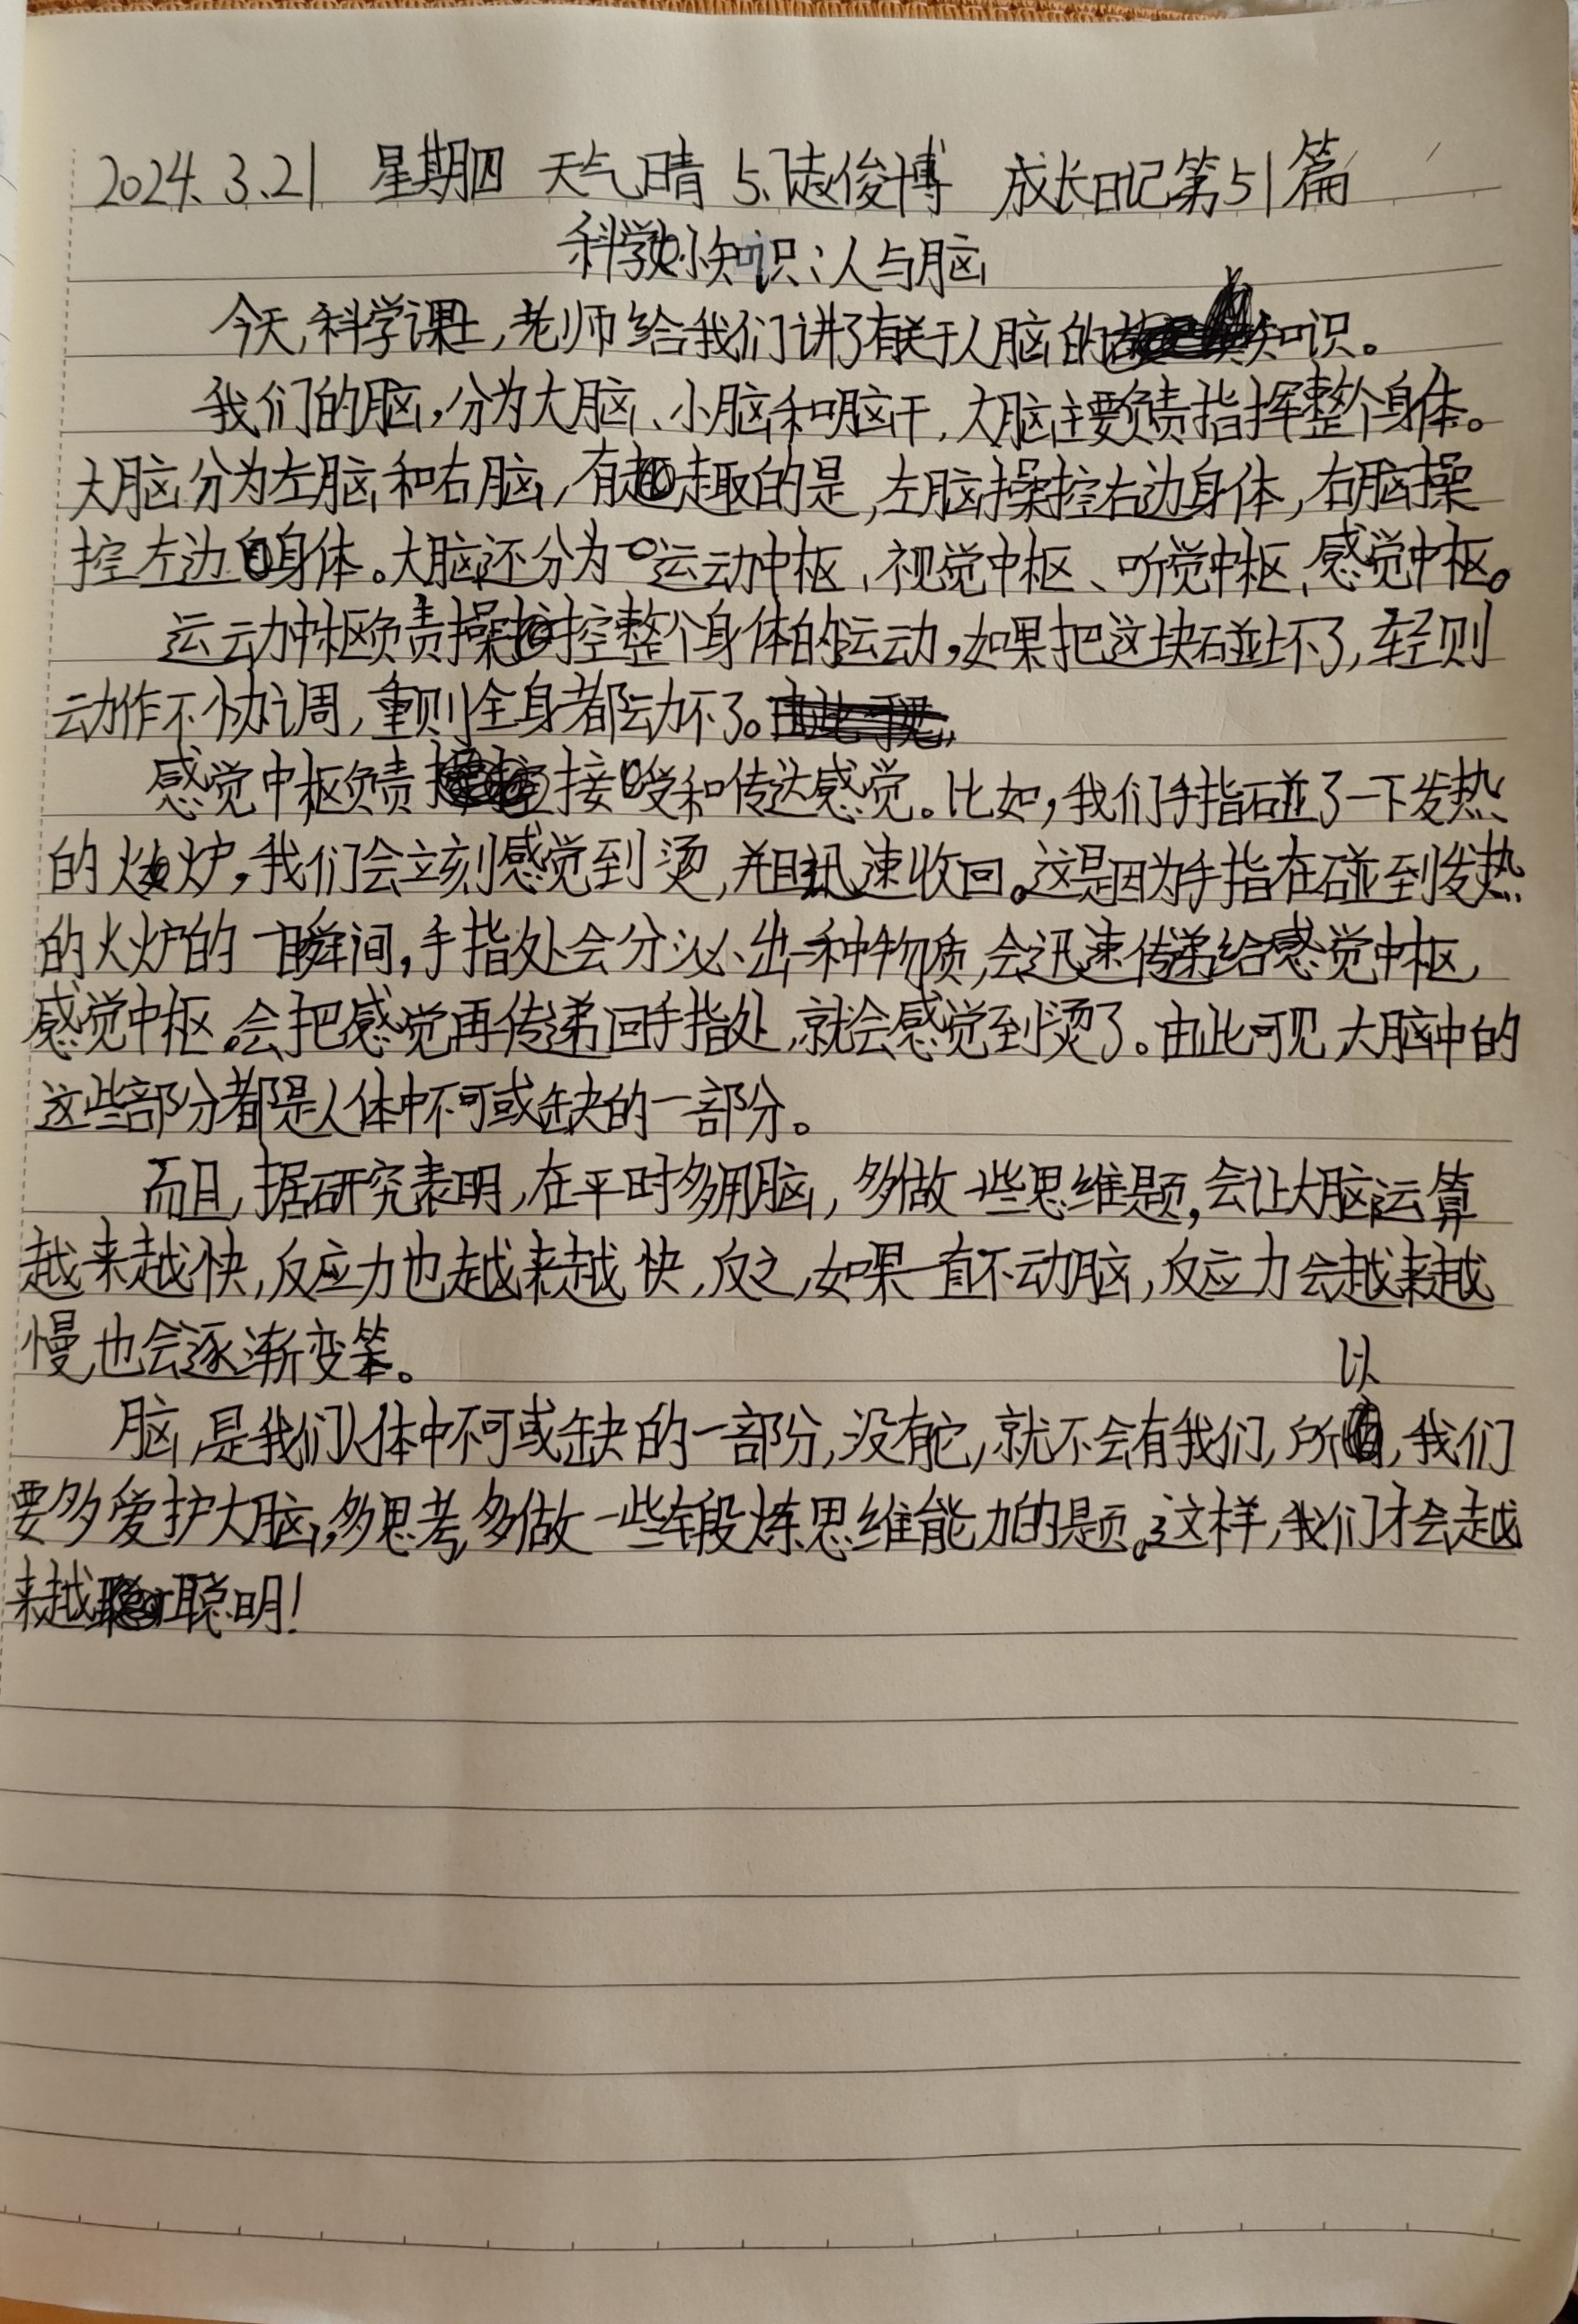 2024.3.21 星期四 天气晴 5.1赵俊博 成长日记第51篇
科学小知识：人与脑
今天，科学课上，老师给我们讲了有关于人脑的知识。
我们的脑，分为大脑、小脑和脑干，大脑主要负责指挥整个身体。
大脑分为左脑和右脑，有趣的是，左脑操控右边身体，右脑操
控左边身体。大脑还分为运动中枢、视觉中枢、听觉中枢、感觉中枢。
运动中枢负责操控整个身体的运动，如果把这块碰坏了，轻则
动作不协调，重则全身都动不了。
感觉中枢负责接受和传达感觉。比如，我们手指碰了一下发热
的火炉，我们会立刻感觉到烫，并且迅速收回。这是因为手指在碰到发热
的火炉的一瞬间，手指处会分泌出一种物质，会迅速传递给感觉中枢，
感觉中枢会把感觉再传递回手指处，就会感觉到烫了。由此可见，大脑中的
这些部分都是人体中不可或缺的一部分。
而且，据研究表明，在平时多用脑，多做一些思维题，会让大脑运算
越来越快，反应力也越来越快，反之，如果一直不动脑，反应力会越来越
慢，也会逐渐变笨。
脑，是我们人体中不可或缺的一部分，没有它，就不会有我们，所以，我们
要多爱护大脑，多思考，多做一些锻炼思维能力的题。这样，我们才会越
来越聪明！